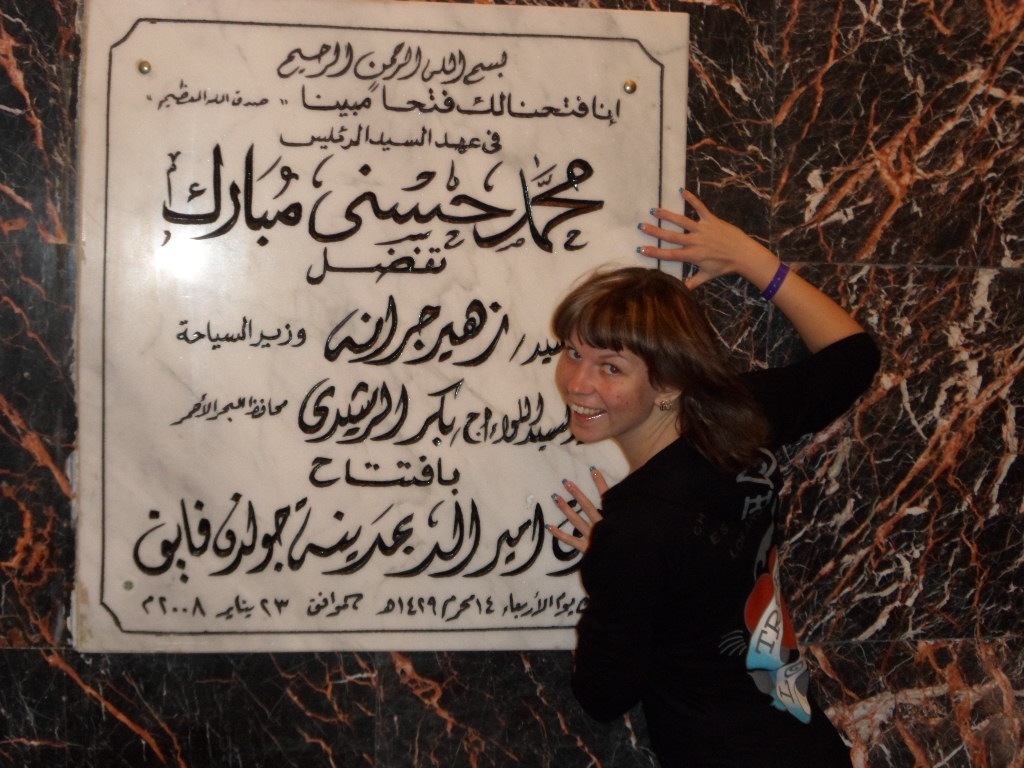 بسم الله الرحمن الرحيم
إنا فتحنا لك فتحاً مبينا "صدق الله العظيم"
فى عهد السيد الرئيس
محمد حسنى مبارك
تفضل
سيد/ زهير جرانه وزير السياحة
السيد اللواء أ.ح/ بكر الرشيدى محافظ البحر الأحمر
بافتتاح
اميرالد بمدينة جولدن فايف
يوم الأربعاء ١٤ محرم ١٤٢٩هـ الموافق ٢٣ يناير ٢٠٠٨م